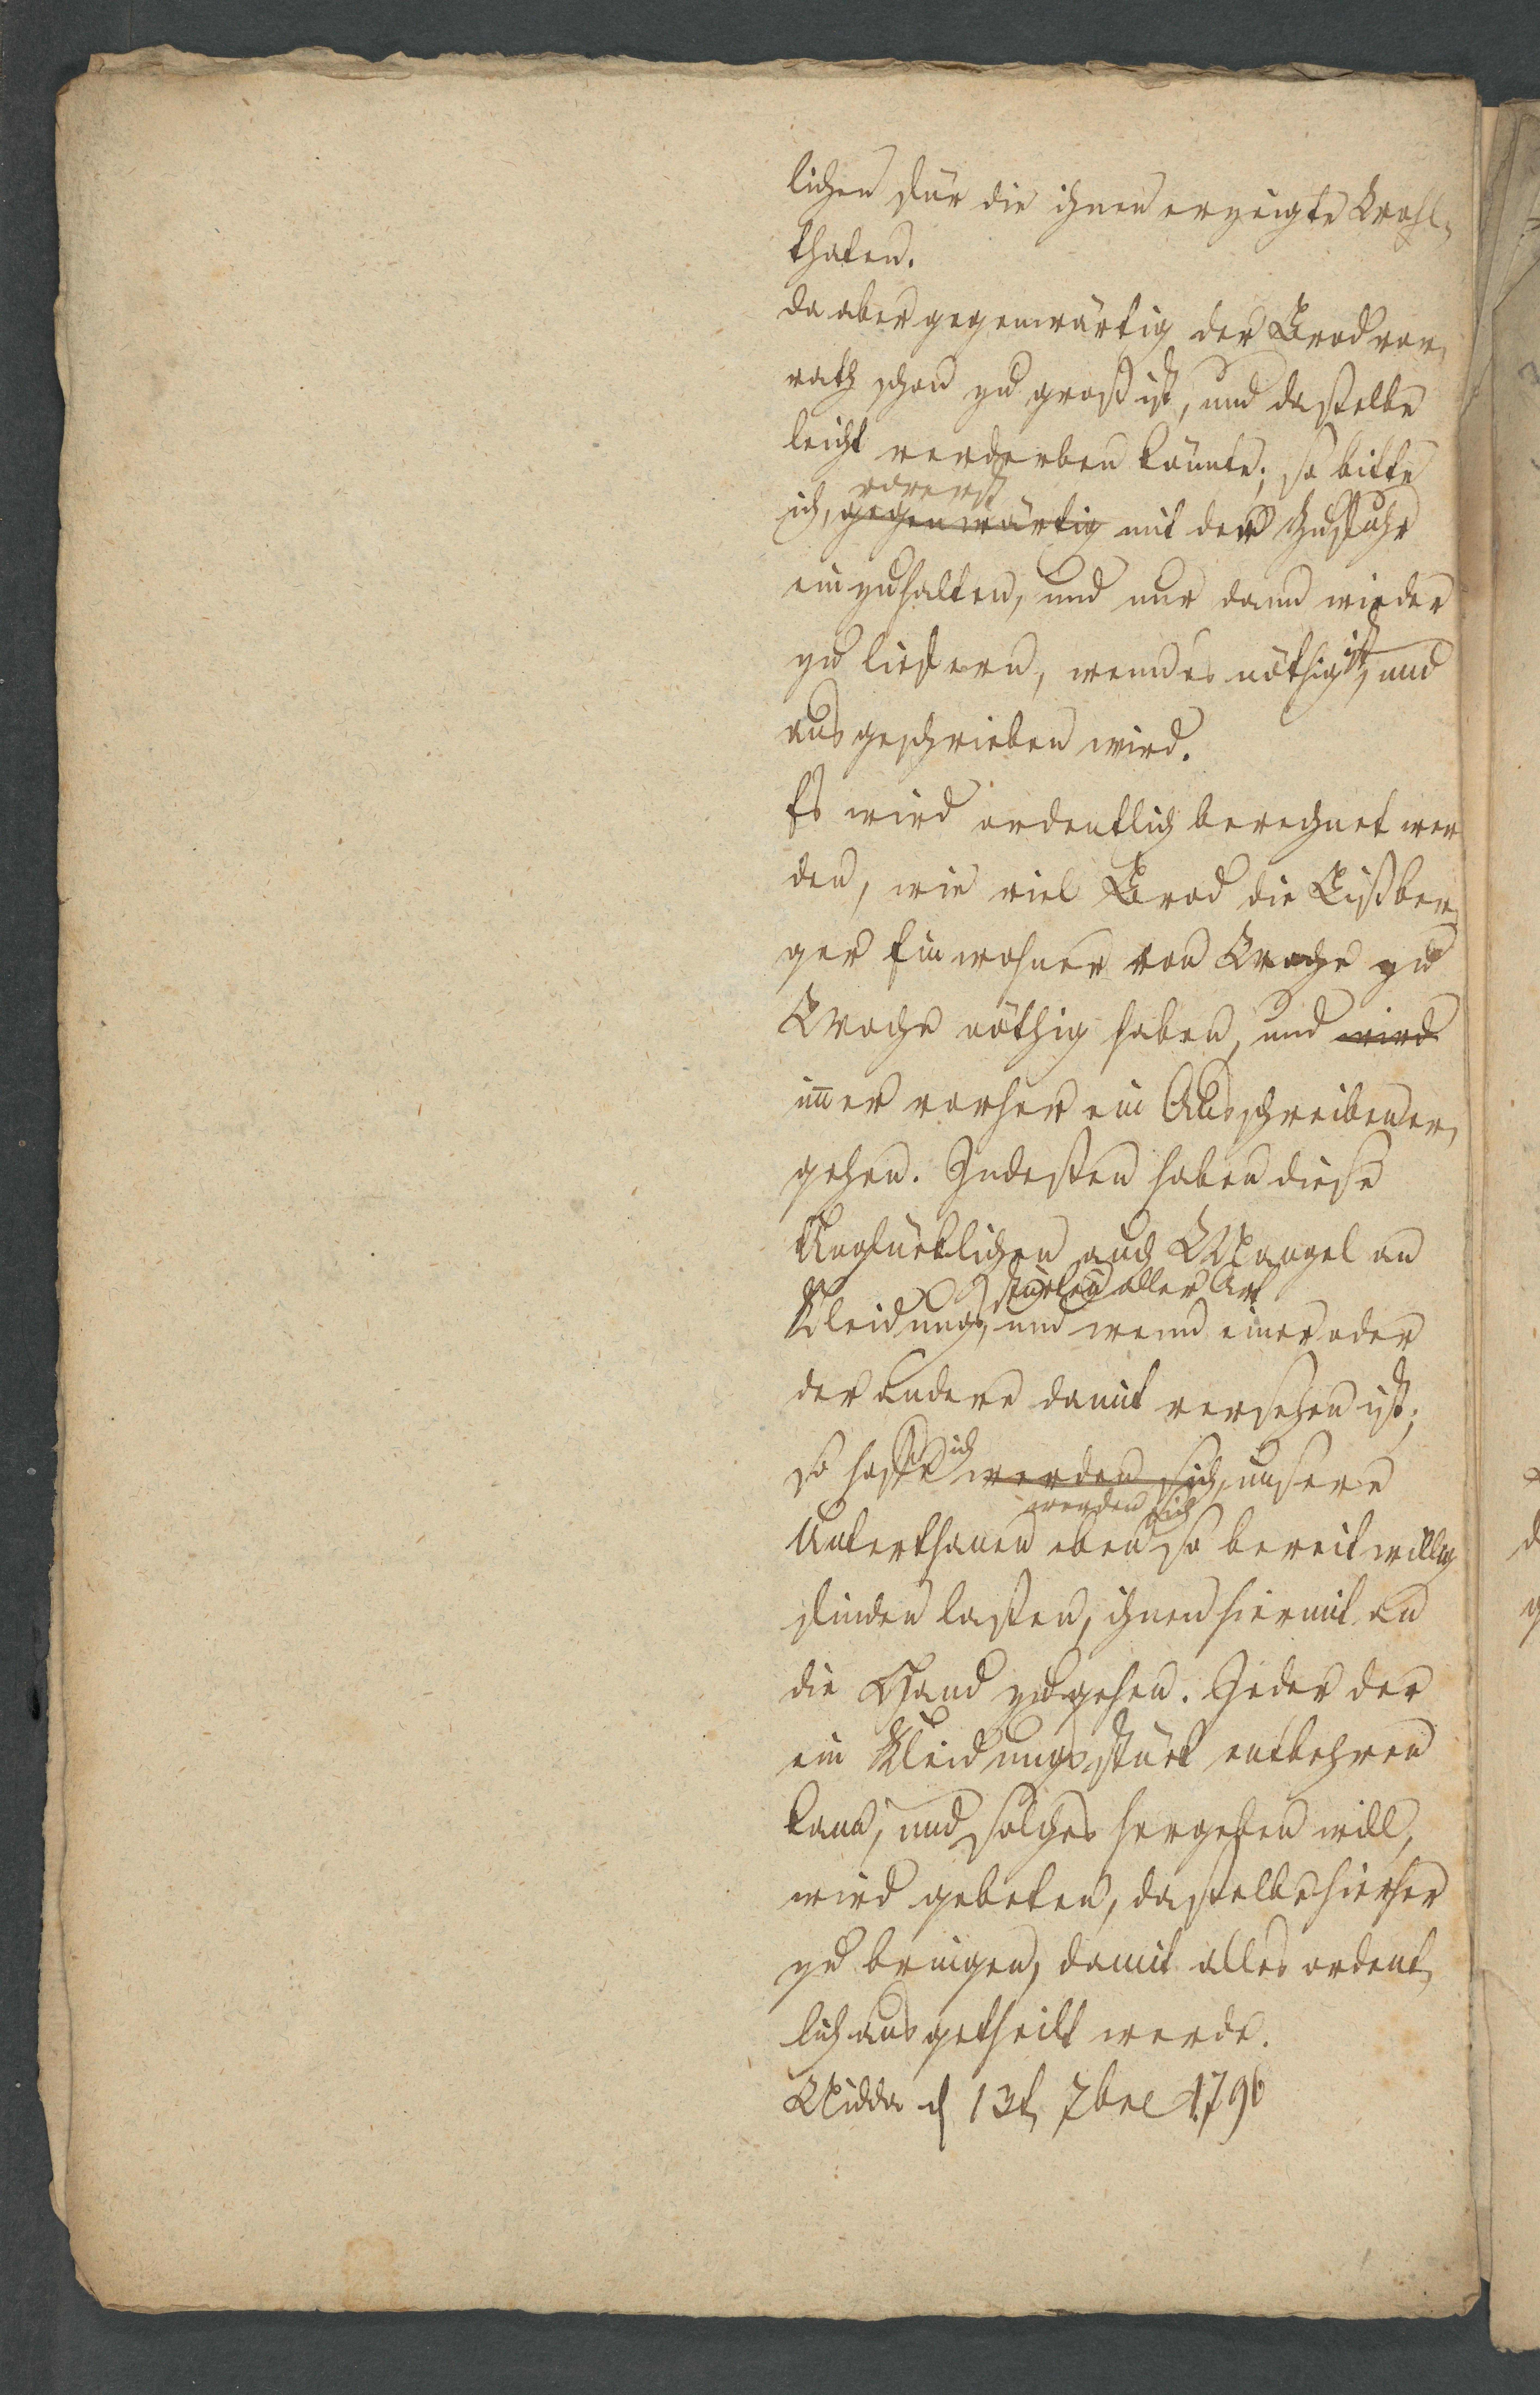 lichen für die ihnen erzeigte Wohl-
thaten.
da aber gegenwärtig der Brodvor-
rath schon zu groß ist, und dasselbe
leicht verderben könnte; so bitte
vorerst
ich, gegenwärtig mit der Zufuhr
einzuhalten, und nur dann wieder
zu liefern, wenn es nöthig ist, und
ausgeschrieben wird.
Es wird ordentlich berechnet wer
den, wie viel Brod die Lißber-
ger Einwohner von Woche zu
Woche nöthig haben, und wird
im̅er vorher ein Ausschreiben er-
gehen. Indessen haben diese
Unglücklichen auch Mangel an
stücken aller Art
Kleidungs, und wenn einer oder
der andere damit versehen ist;
so hoffe ich werden sich, unsere
werden sich
Unterthanen eben so bereitwillig
finden lassen, ihnen hiermit an
die Hand zu gehen. Jeder der
ein Kleidungsstück entbehren
kann, und solches hergeben will,
wird gebeten, dasselbe hierher
zu bringen, damit alles ordent-
lich ausgetheilt werde.
Nidda d 13t 7bre 1796